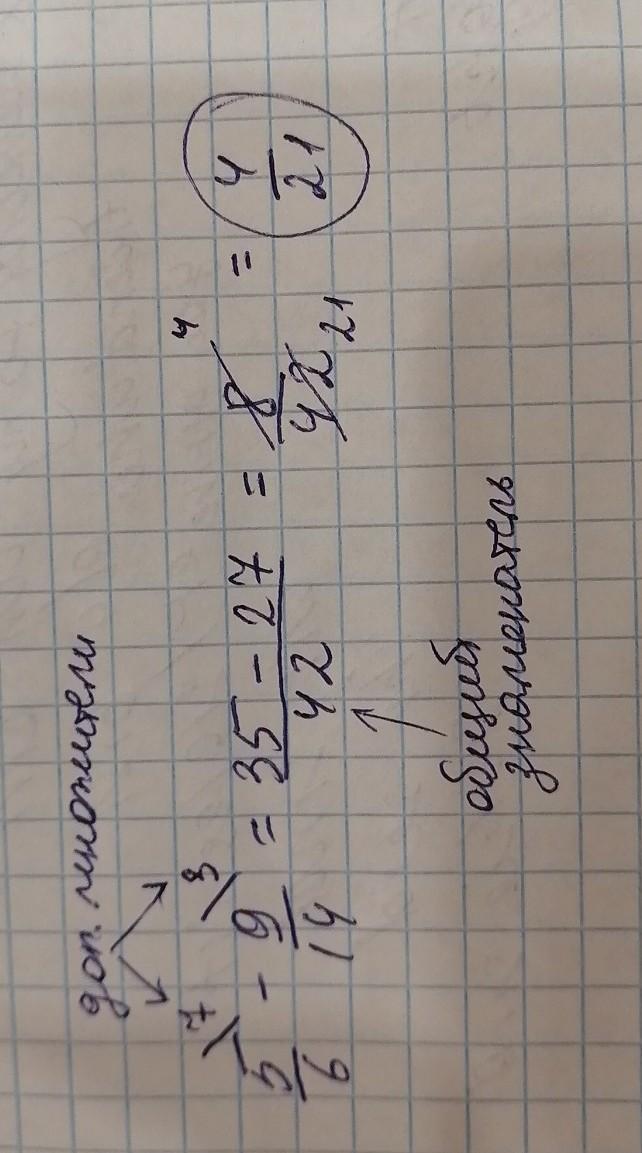 доп. множители
5/6 \7 - 9/14 \3 = 35 - 27/42 = 8/42 4 21 = 4/21
общий
знаменатель